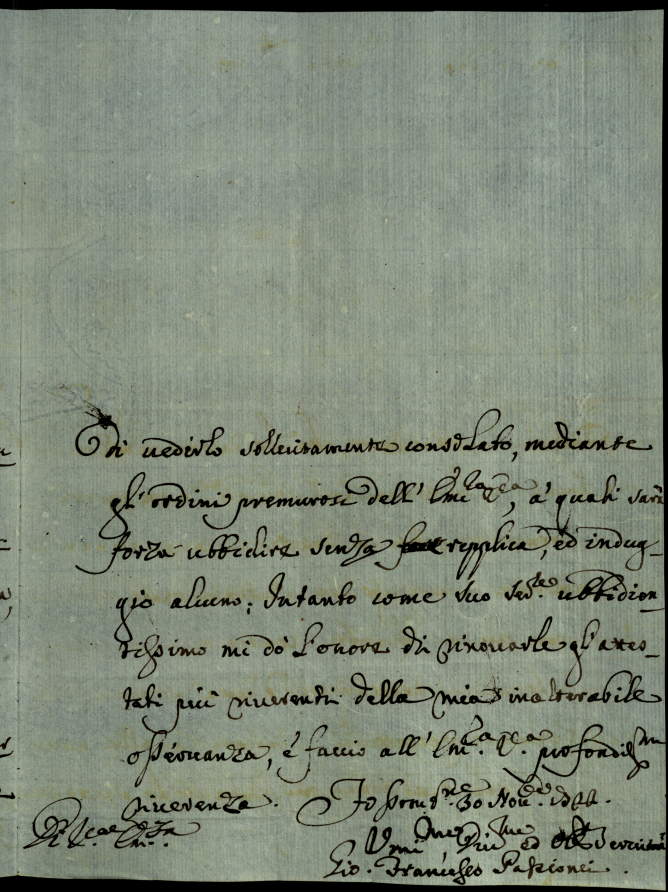 di uederlo sollecitamente consolato, mediante
gl'ordini premurosi dell' Em.za V.ra, a' quali sarà
forza ubbidire senza replica, ed indug-
gio alcuno; Intanto come suo ser.re ubbidien
tissimo mi dò l'onore di rinouarle gl'attes-
tati più riuerenti della mia inalterabile
osseruanza, è faccio all' Em.za V.ra profondiss.ma
riuerenza. 30 Nou.bre
Di V.ra Em.za
Um.mo Diu.mo ed
Gio. Francesco Passionei.